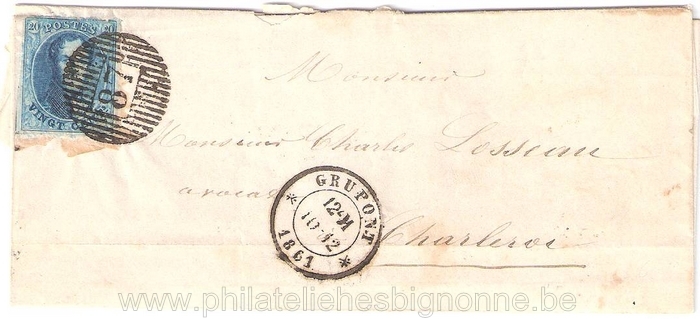 20 POSTES 20
VINGT
Monsieur
Monsieur Charles Lossiau
avocat
Charleroi
GRUPONT
12-M
10 12
1861
www.philateliehesbignonne.be